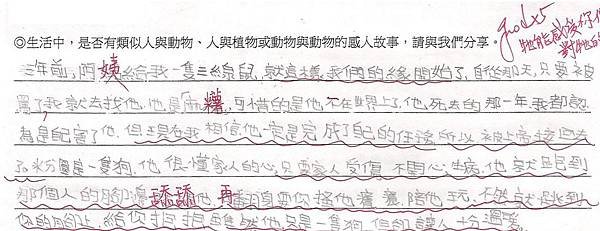 ◎生活中，是否有類似人與動物、人與植物或動物與動物的感人故事，請與我們分享。
good x5
牠能感後你
對牠的
三年前,阿姨給我一隻三線鼠,就這樣我們的緣開始了,自從那天,只要被
罵了我就去找他,他是,可惜的是他不在世界上了,他死去的那一年,我都認
為是我害了他,但現在我相信他一定是完成了自己的任務所以被上帝接回去
了,米分圓是一隻狗,他很懂家人的心,只要家人受傷、不開心、生病,他就呆到
那個人的腳邊舔舔他,再翻身要你搔他癢癢,陪他玩,不然就是跳到
你的腳上,給你抱抱,雖然他只是一隻狗,但卻讓人十分溫暖。